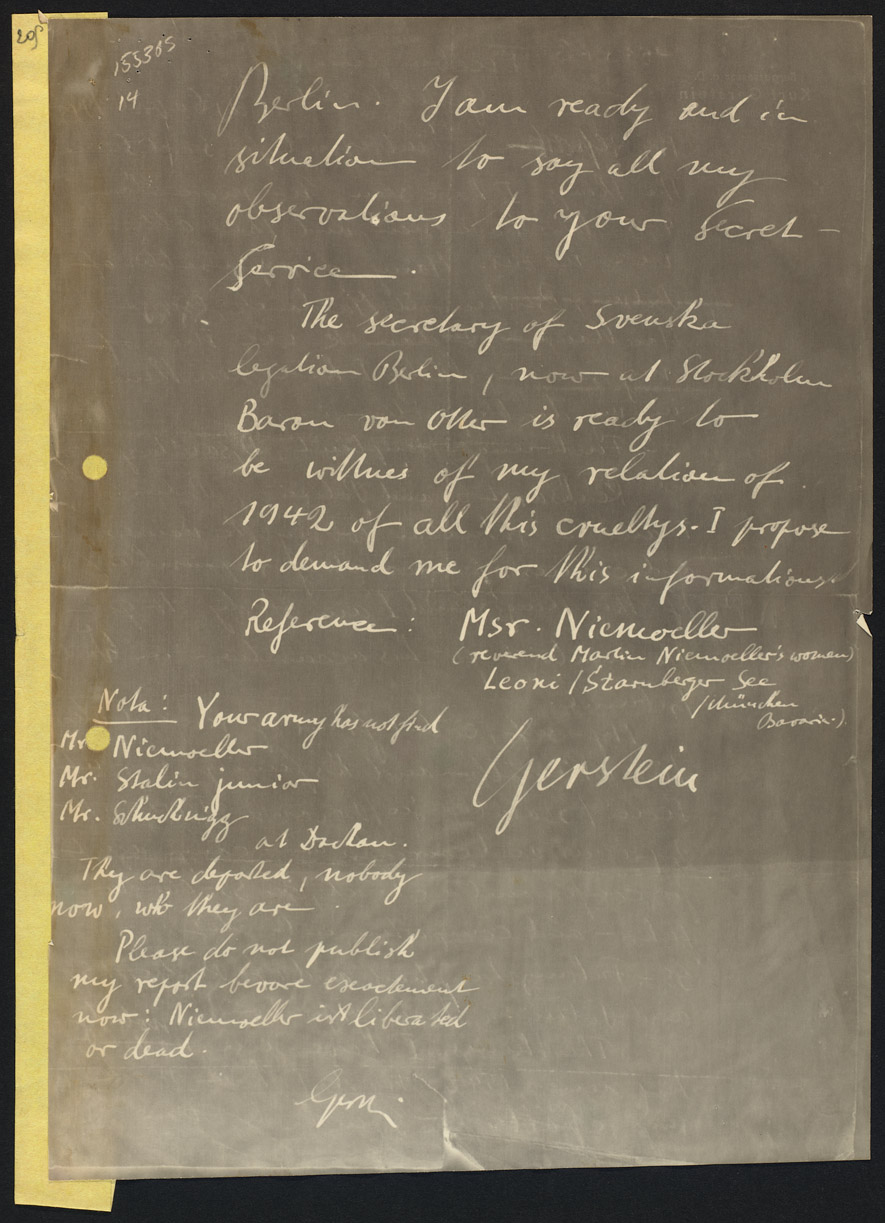 205
155385
14
Berlin. I am ready and in
situation to say all my
observations to your secret-
service.
The secretary of Svenska
legation Berlin, now at Stockholm
Baron von Otter is ready to
be wittnes of my relation of
1942 of all this crueltys. I propose
to demand me for this informations.
Reference: Msr. Niemoeller
(reverend Martin Niemoeller's women)
Leoni/Starnberger See
/München
Bavaria.).
Nota: Your army has not find
Mr. Niemoeller
Mr. Stalin junior
Mr. Schuchnigg
at Dachau.
They are deported, nobody
now, who they are
Please do not publish
my report bevore exactement
now: Niemoeller ist liberated
or dead.
Gerstein